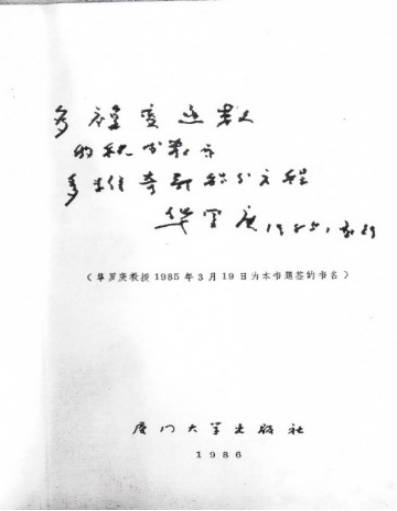 多复变函数
的积分表示
多维奇异积分方程
华罗庚 1985.3.19
(华罗庚教授1985年3月19日为本书题签的书名)
厦门大学出版社
1986